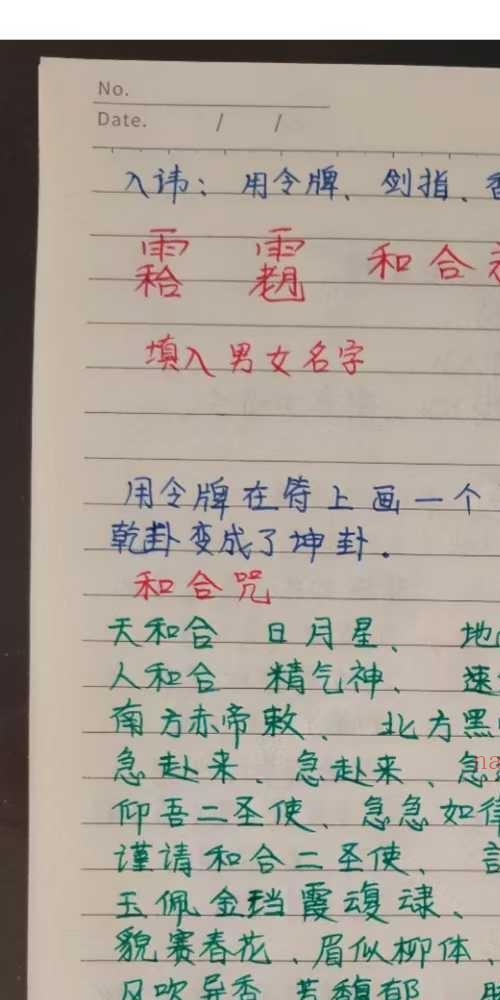 No.
Date. / /
入讳：用令牌、剑指、香
和合
填入男女名字
用令牌在符上画一个
乾卦变成了坤卦.
和合咒
天和合 日月星、 地
人和合 精气神、 速
南方赤帝敕、 北方黑
急赴来、急赴来、急
仰吾二圣使、急急如律
谨请和合二圣使、
玉佩金珰霞
貌赛春花、眉似柳体、
风吹异香 芳馥郁